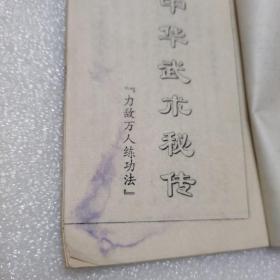 中华武术秘传
『力敌万人练功法』